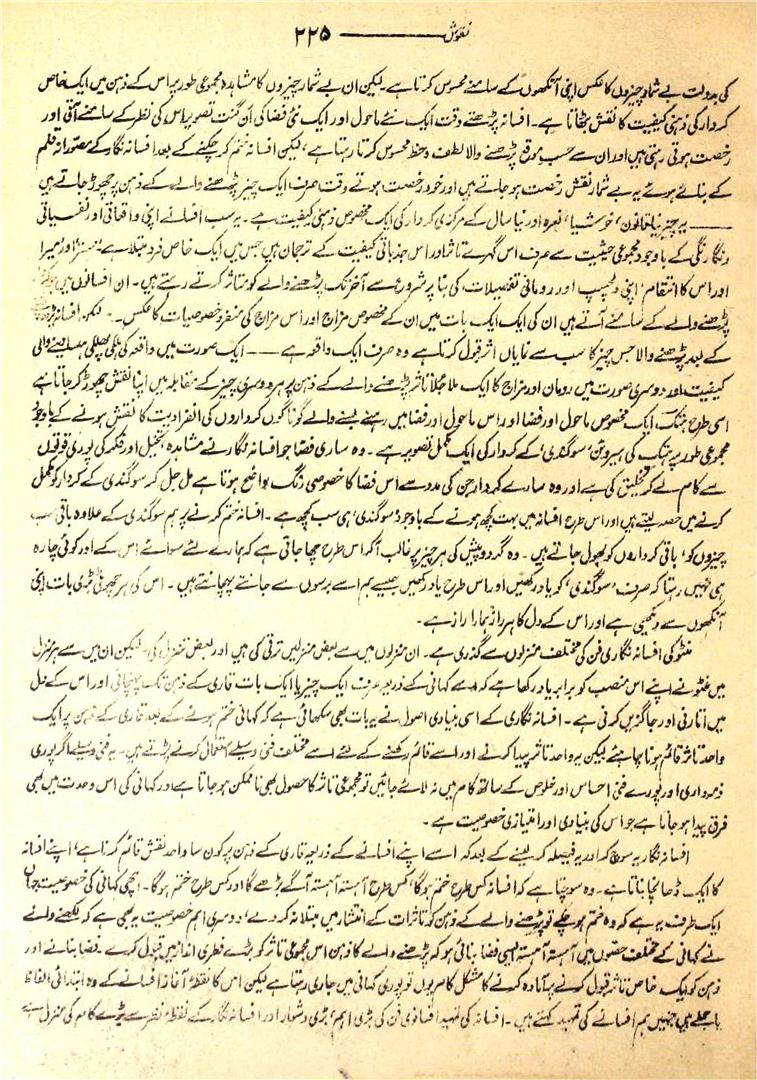 نقوش ——— ۲۲۵
کی بدولت بے شمار چیزوں کا عکس اپنی آنکھوں کے سامنے محسوس کرتا ہے۔ لیکن ان بے شمار چیزوں کا مشاہدہ مجموعی طور پر اس کے ذہن میں ایک خاص
کردار کی ذہنی کیفیت کا نقش بٹھاتا ہے۔ افسانہ پڑھتے وقت ایک نئے ماحول اور ایک نئی فضا کی ان گنت تصویریں اس کی نظر کے سامنے آتی اور
رخصت ہوتی رہتی ہیں اور ان سے حسب موقع پڑھنے والا لطف و حظ محسوس کرتا رہتا ہے، لیکن افسانہ ختم کر چکنے کے بعد افسانہ نگار کے مصورانہ قلم
کے بنائے ہوئے یہ بے شمار نقش رخصت ہو جاتے ہیں اور خود رخصت ہوتے وقت صرف ایک چیز پڑھنے والے کے ذہن پر چھوڑ جاتے ہیں
—— یہ چیز نیا قانون، خوشیا، نعرہ اور نیا سال کے مرکزی کردار کی ایک مخصوص ذہنی کیفیت ہے۔ یہ سب افسانے اپنی واقعاتی اور نفسیاتی
رنگا رنگی کے باوجود مجموعی حیثیت سے صرف اس گہرے تاثر اور اس جذباتی کیفیت کے ترجمان ہیں جس میں ایک خاص فرد مبتلا ہے۔ 'مسز' اور 'میرا
اور اس کا انتقام' اپنی دلچسپ اور رومانی تفصیلات کی بنا پر شروع سے آخر تک پڑھنے والے کو متاثر کرتے رہتے ہیں۔ ان افسانوں میں
پڑھنے والے کے سامنے آتے ہیں ان کی ایک ایک بات میں ان کے مخصوص مزاج اور اس مزاج کی منفرد خصوصیات کا عکس۔ لیکن افسانہ پڑھنے
کے بعد پڑھنے والا جس چیز کا سب سے نمایاں اثر قبول کرتا ہے وہ صرف ایک واقعہ ہے —— ایک صورت میں واقعہ کی ہلکی پھلکی ہنسا دینے والی
کیفیت اور دوسری صورت میں رومان اور مزاح کا ایک ملا جلا تاثر پڑھنے والے کے ذہن پر ہر دوسری چیز کے مقابلہ میں اپنا نقش چھوڑ کر جاتا ہے
اسی طرح ہتک، ایک مخصوص ماحول اور فضا اور اس ماحول اور فضا میں رہنے بسنے والے گوناگوں کرداروں کی انفرادیت کا نقش ہونے کے باوجود
مجموعی طور پر ہتک کی ہیروئن 'سوگندی' کے کردار کی ایک مکمل تصویر ہے۔ وہ ساری فضا جو افسانہ نگار نے مشاہدہ، تخیل اور فکر کی پوری قوتوں
سے کام لے کر تخلیق کی ہے اور وہ سارے کردار جن کی مدد سے اس فضا کا خصوصی رنگ واضح ہوتا ہے مل جل کر سوگندی کے کردار کو مکمل
کرنے میں حصہ لیتے ہیں اور اس طرح افسانہ میں بہت کچھ ہونے کے باوجود 'سوگندی' ہی سب کچھ ہے۔ افسانہ ختم کرنے پر ہم سوگندی کے علاوہ باقی سب
چیزوں کو، باقی کرداروں کو بھول جاتے ہیں۔ وہ گرد و پیش کی ہر چیز پر غالب آ کر اس طرح چھا جاتی ہے کہ ہمارے لئے سوائے اس کے اور کوئی چارہ
ہی نہیں رہتا کہ صرف 'سوگندی' کو یاد رکھیں اور اس طرح یاد رکھیں جیسے ہم اسے برسوں سے جانتے پہچانتے ہیں۔ اس کی ہر چھوٹی بڑی بات اپنی
آنکھوں سے دیکھی ہے اور اس کے دل کا ہر راز ہمارا راز ہے۔
منٹو کی افسانہ نگاری فن کی مختلف منزلوں سے گذری ہے۔ ان منزلوں میں سے بعض منزلیں ترقی کی ہیں اور بعض تنزل کی۔ لیکن ان میں سے ہر منزل
میں منٹو نے اپنے اس منصب کو برابر یاد رکھا ہے کہ اسے کہانی کے ذریعہ صرف ایک چیز یا ایک بات قاری کے ذہن تک پہنچانی اور اس کے دل
میں اتارنی اور جاگزیں کرنی ہے۔ افسانہ نگاری کے اسی بنیادی اصول نے یہ بات بھی سکھائی ہے کہ کہانی ختم ہونے کے بعد قاری کے ذہن پر ایک
واحد تاثر قائم ہونا چاہئے لیکن یہ واحد تاثر پیدا کرنے اور اسے قائم رکھنے کے لئے اسے مختلف فنی وسیلے استعمال کرنے پڑتے ہیں۔ یہ فنی وسیلے اگر پوری
ذمہ داری اور پورے فنی احساس اور خلوص کے ساتھ کام میں نہ لائے جائیں تو مجموعی تاثر کا حصول بھی ناممکن ہو جاتا ہے اور کہانی کی اس وحدت میں بھی
فرق پیدا ہو جاتا ہے جو اس کی بنیادی اور امتیازی خصوصیت ہے۔
افسانہ نگار یہ سوچ کر اور یہ فیصلہ کر لینے کے بعد کہ اسے اپنے افسانے کے ذریعہ قاری کے ذہن پر کون سا واحد نقش قائم کرنا ہے، اپنے افسانہ
کا ایک ڈھانچا بناتا ہے۔ وہ سوچتا ہے کہ افسانہ کس طرح ختم ہوگا، کس طرح آہستہ آہستہ آگے بڑھے گا اور کس طرح ختم ہوگا۔ اچھی کہانی کی خصوصیت جہاں
ایک طرف یہ ہے کہ وہ ختم ہو چلے تو پڑھنے والے کے ذہن کو تاثرات کے انتشار میں مبتلا نہ کر دے، دوسری اہم خصوصیت یہ بھی ہے کہ لکھنے والے
نے کہانی کے مختلف حصوں میں آہستہ آہستہ ایسی فضا بنائی ہو کہ پڑھنے والے کا ذہن اس مجموعی تاثر کو بڑے فطری انداز میں قبول کرے۔ فضا بنانے اور
ذہن کو ایک خاص تاثر قبول کرنے پر آمادہ کرنے کا مشکل کام یوں تو پوری کہانی میں جاری رہتا ہے لیکن اس کا نقطۂ آغاز افسانے کے وہ ابتدائی الفاظ
یا جملے ہیں جنہیں ہم افسانے کی تمہید کہتے ہیں۔ افسانہ کی تمہید افسانوی فن کی بڑی اہم، بڑی دشوار اور افسانہ نگار کے نقطۂ نظر سے بڑے کام کی منزل ہے